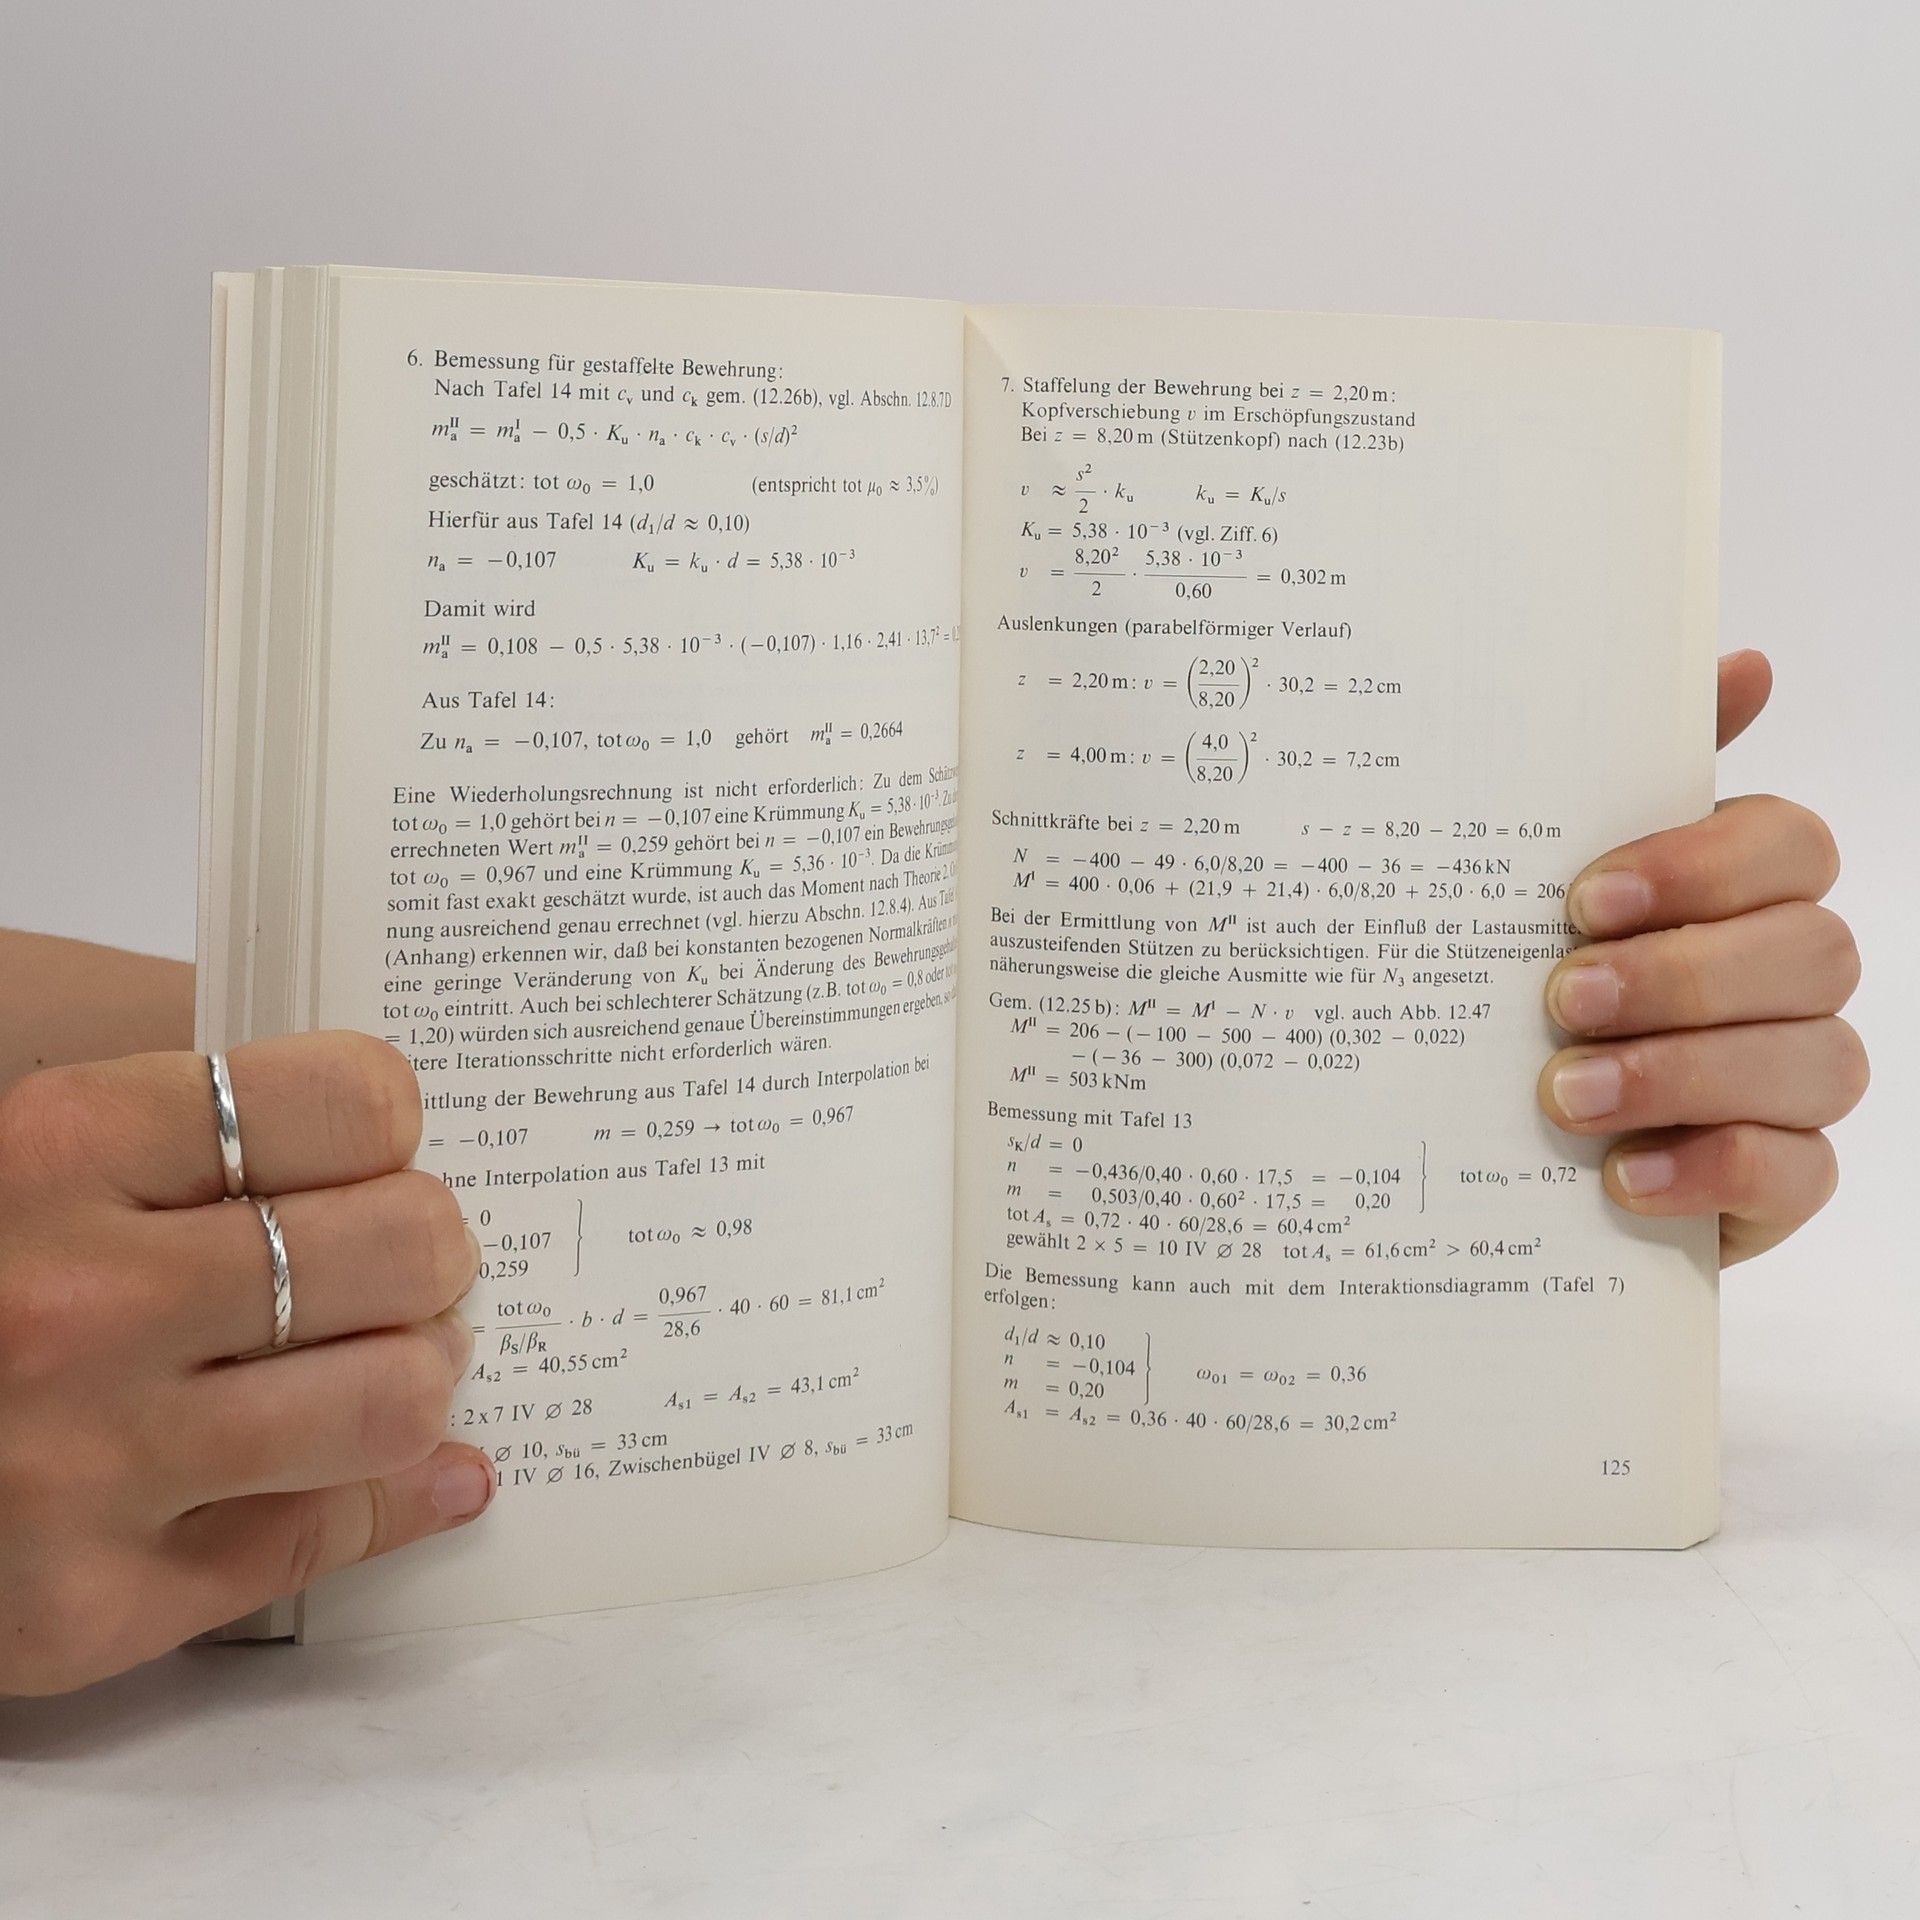 6. Bemessung für gestaffelte Bewehrung:
Nach Tafel 14 mit c_v und c_k gem. (12.26b), vgl. Abschn. 12.8.7D
m_a^II = m_a^I − 0,5 · K_u · n_a · c_k · c_v · (s/d)²
geschätzt: tot ω₀ = 1,0 (entspricht tot μ₀ ≈ 3,5%)
Hierfür aus Tafel 14 (d₁/d ≈ 0,10)
n_a = −0,107 K_u = k_u · d = 5,38 · 10⁻³
Damit wird
m_a^II = 0,108 − 0,5 · 5,38 · 10⁻³ · (−0,107) · 1,16 · 2,41 · 13,7² =
Aus Tafel 14:
Zu n_a = −0,107, tot ω₀ = 1,0 gehört m_a^II = 0,2664
Eine Wiederholungsrechnung ist nicht erforderlich: Zu dem
tot ω₀ = 1,0 gehört bei n = −0,107 eine Krümmung K_u = 5,38 · 10⁻³.
errechneten Wert m_a^II = 0,259 gehört bei n = −0,107 ein
tot ω₀ = 0,967 und eine Krümmung K_u = 5,36 · 10⁻³. Da die
somit fast exakt geschätzt wurde, ist auch das Moment nach Theorie 2.
nung ausreichend genau errechnet (vgl. hierzu Abschn. 12.8.4). Aus
(Anhang) erkennen wir, daß bei konstanten bezogenen Normalkräften
eine geringe Veränderung von K_u bei Änderung des
tot ω₀ eintritt. Auch bei schlechterer Schätzung (z.B. tot ω₀ = 0,8 oder
= 1,20) würden sich ausreichend genaue Übereinstimmungen ergeben,
itere Iterationsschritte nicht erforderlich wären.
ittlung der Bewehrung aus Tafel 14 durch Interpolation bei
= −0,107 m = 0,259 → tot ω₀ = 0,967
hne Interpolation aus Tafel 13 mit
= 0
−0,107 } tot ω₀ ≈ 0,98
0,259
= tot ω₀ / (β_S/β_R) · b · d = 0,967/28,6 · 40 · 60 = 81,1 cm²
A_s2 = 40,55 cm²
: 2 x 7 IV ∅ 28 A_s1 = A_s2 = 43,1 cm²
∅ 10, s_bü = 33 cm
1 IV ∅ 16, Zwischenbügel IV ∅ 8, s_bü = 33 cm
7. Staffelung der Bewehrung bei z = 2,20 m:
Kopfverschiebung v im Erschöpfungszustand
Bei z = 8,20 m (Stützenkopf) nach (12.23b)
v ≈ s²/2 · k_u k_u = K_u/s
K_u = 5,38 · 10⁻³ (vgl. Ziff. 6)
v = 8,20²/2 · 5,38 · 10⁻³/0,60 = 0,302 m
Auslenkungen (parabelförmiger Verlauf)
z = 2,20 m: v = (2,20/8,20)² · 30,2 = 2,2 cm
z = 4,00 m: v = (4,0/8,20)² · 30,2 = 7,2 cm
Schnittkräfte bei z = 2,20 m s − z = 8,20 − 2,20 = 6,0 m
N = −400 − 49 · 6,0/8,20 = −400 − 36 = −436 kN
M^I = 400 · 0,06 + (21,9 + 21,4) · 6,0/8,20 + 25,0 · 6,0 = 206
Bei der Ermittlung von M^II ist auch der Einfluß der Lastausmitte
auszusteifenden Stützen zu berücksichtigen. Für die Stützeneigenlas
näherungsweise die gleiche Ausmitte wie für N₃ angesetzt.
Gem. (12.25 b): M^II = M^I − N · v vgl. auch Abb. 12.47
M^II = 206 − (− 100 − 500 − 400) (0,302 − 0,022)
− (− 36 − 300) (0,072 − 0,022)
M^II = 503 kNm
Bemessung mit Tafel 13
s_K/d = 0
n = −0,436/0,40 · 0,60 · 17,5 = −0,104 } tot ω₀ = 0,72
m = 0,503/0,40 · 0,60² · 17,5 = 0,20
tot A_s = 0,72 · 40 · 60/28,6 = 60,4 cm²
gewählt 2 × 5 = 10 IV ∅ 28 tot A_s = 61,6 cm² > 60,4 cm²
Die Bemessung kann auch mit dem Interaktionsdiagramm (Tafel 7)
erfolgen:
d₁/d ≈ 0,10
n = −0,104 } ω₀₁ = ω₀₂ = 0,36
m = 0,20
A_s1 = A_s2 = 0,36 · 40 · 60/28,6 = 30,2 cm²
125